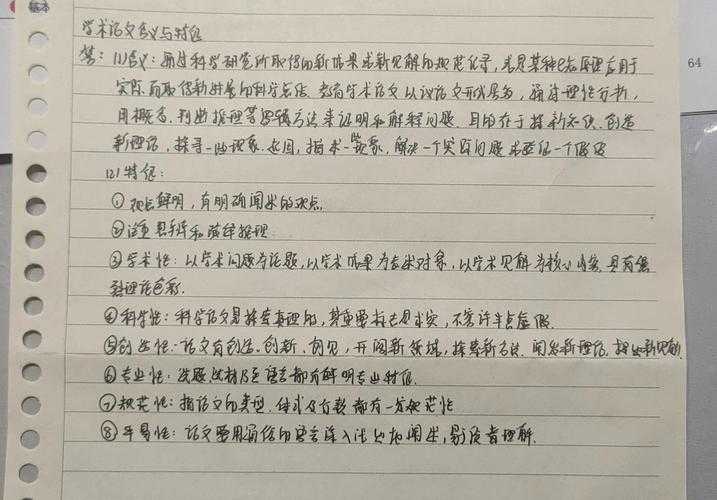 基本
64
学术论文含义与特征
答：(1)含义：通过科学研究所取得的新成果或新见解的规范记录，或是某种已知原理应用于
实际而取得新进展的科学总结，教育学术论文以议论文形式居多，通过理性分析，
用概念、判断推理等逻辑方法来证明和解释问题，目的在于探新知识、创造
新理论，探寻一些现象、原因，描术一现象，解决一个实际问题或验证一个假设
(2)特征：
①观点鲜明，有明确阐述的观点
②注重思辨和演绎推理
③学术性：以学术问题为论题，以学术成果为表述对象，以学术见解为核心内容，具有
理论色彩.
④科学性：科学论文是探索真理的，其重要标志是求实，不容许半点虚假.
⑤创造性：论文有创造、创新、创见，开阔新领域，探索新方法，阐发新理论，提出新见解.
⑥专业性：选题选材乃至语言都有鲜明专业特征.
⑦规范性：指论文的类型、体式及行款都有一定规范性
⑧平易性：论文要用通俗的语言深入浅出加阐述，易读者理解.